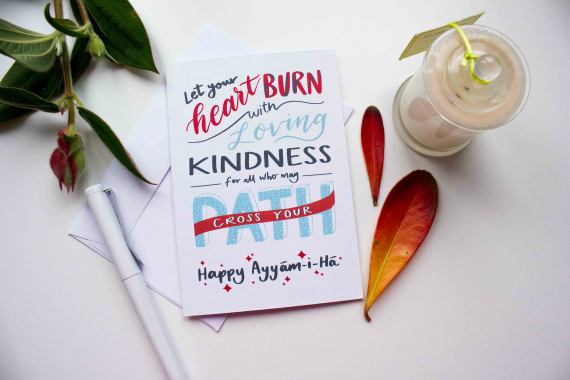 Let your
heart BURN
with
Loving
KINDNESS
for all who may
CROSS YOUR
PATH
Happy Ayyám-i-Há